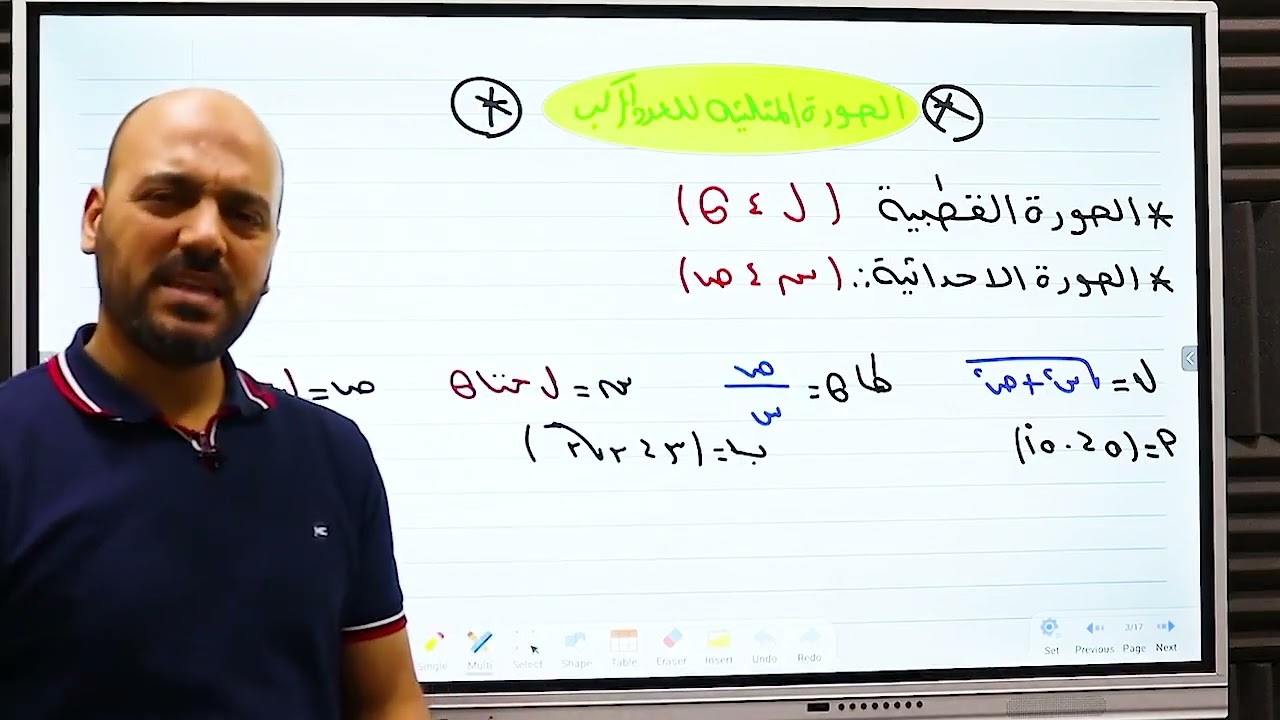 * الصورة المثلثيه للعدد المركب *
* الصورة القطبية (ل ، θ)
* الصورة الاحداثية :. (س ، ص)
ل = √س² + ص² طا θ = ص/س س = ل حتا θ ص = ل
م = (٥ ، ١٥٠) ب = (٣ ، ٣√٢)
Single Multi Select Shape Table Eraser Insert Undo Redo
Set Previous 3/17 Page Next